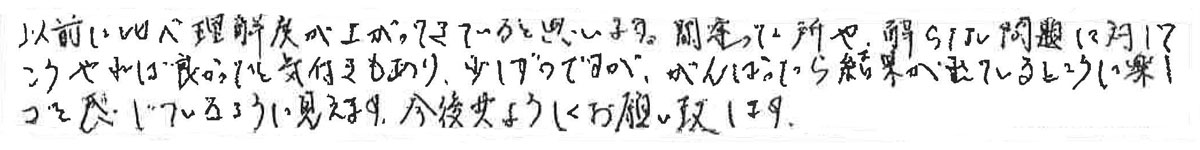 以前に比べ理解度が上がってきていると思います。間違った所や、解らない問題に対して
こうやれば良かったと気付きもあり、少しずつですが、がんばったら結果が出ているというように楽し
さを感じているように見えます。今後共よろしくお願い致します。